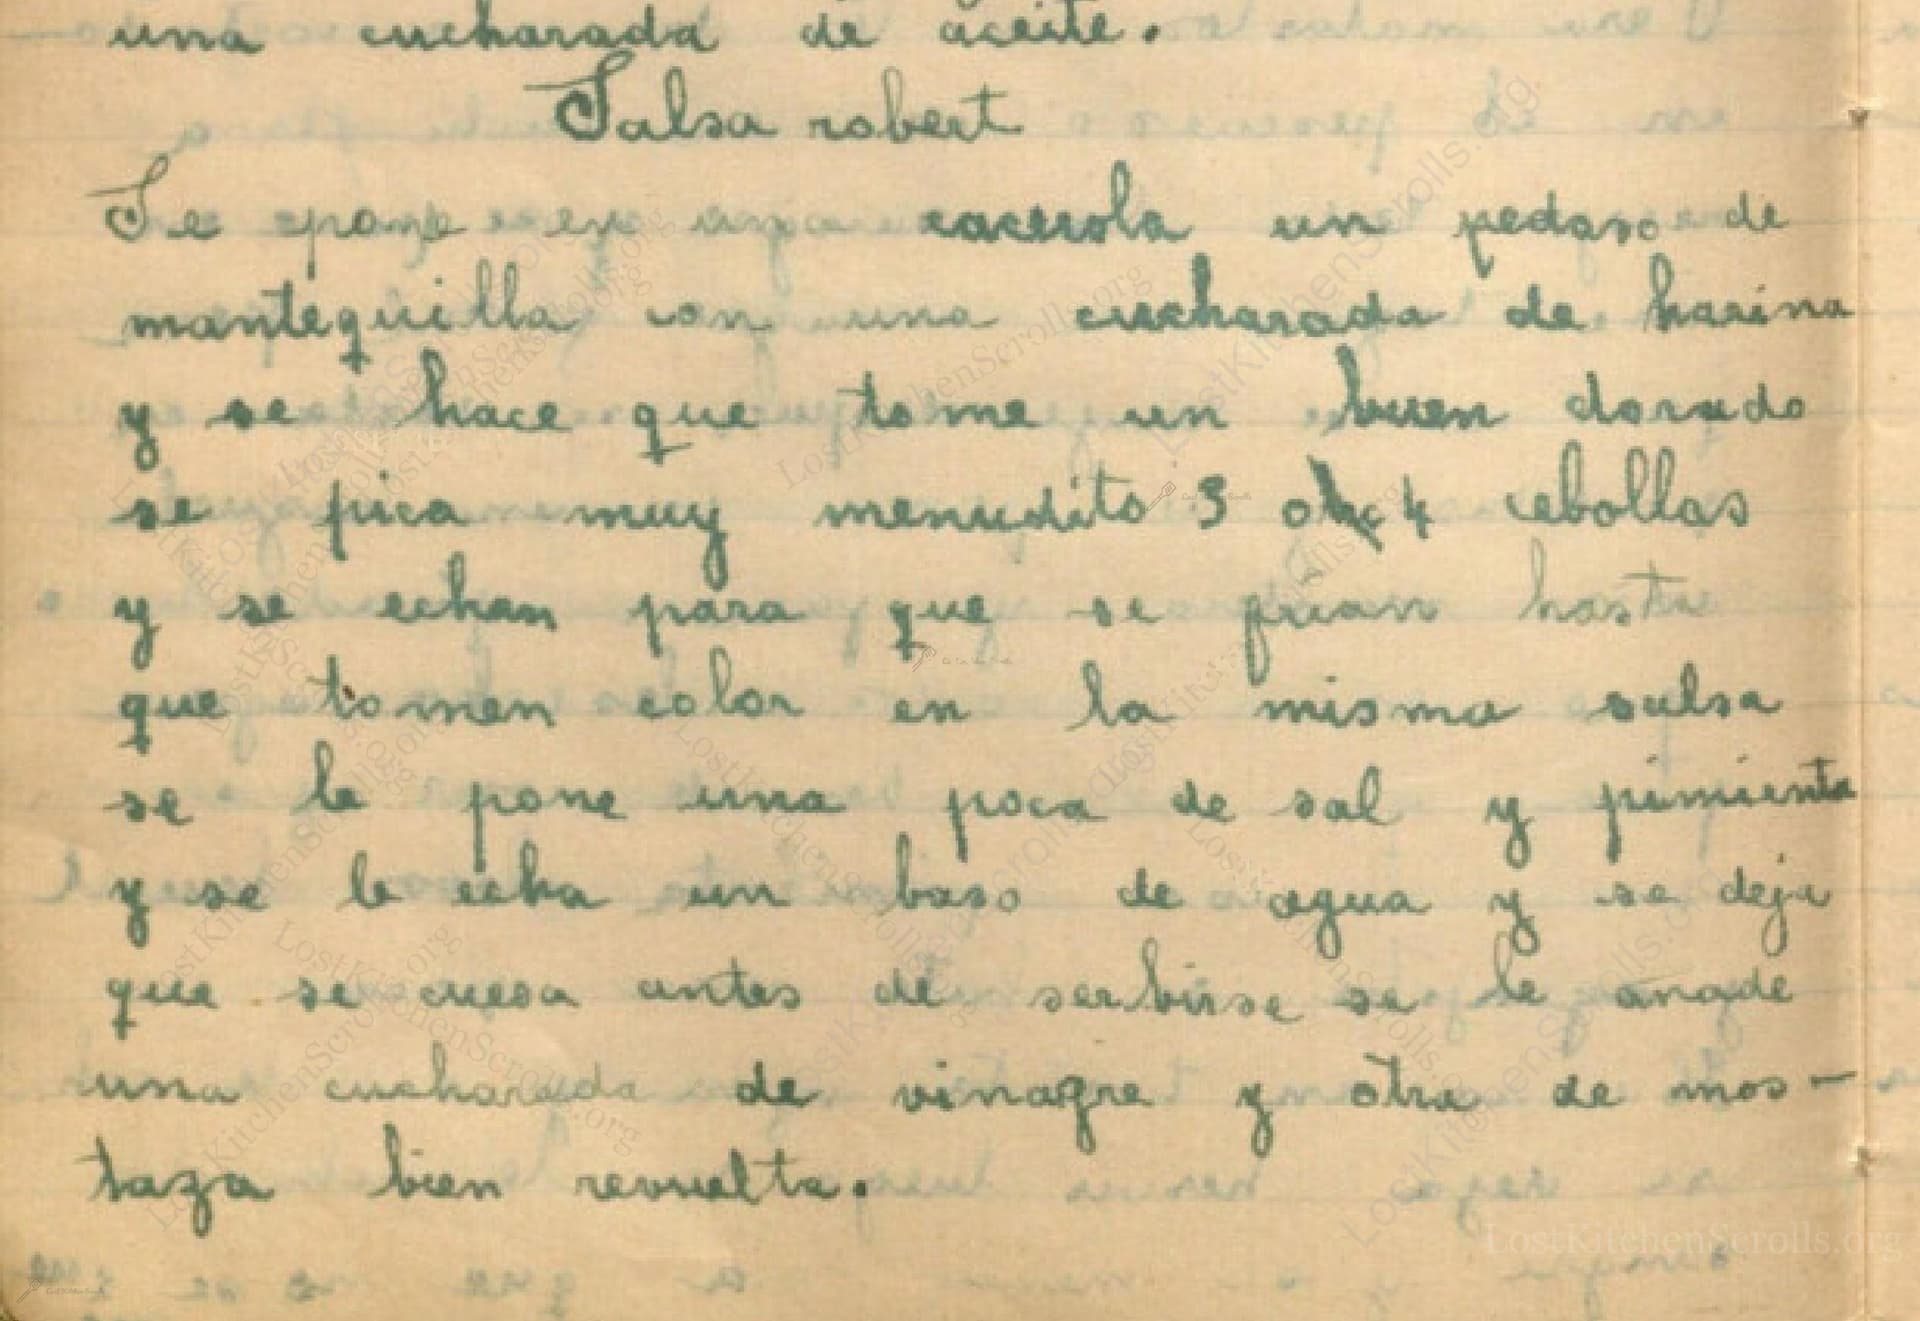 una cucharada de aceite.
Salsa robert
Se pone en una cacerola un pedaso de
mantequilla con una cucharada de harina
y se hace que tome un buen dorado
se pica muy menudito 3 o 4 cebollas
y se echan para que se frian hasta
que tomen color en la misma salsa
se le pone una poca de sal y pimienta
y se le echa un baso de agua y se deja
que se cuesa antes de serbirse se le anade
una cucharada de vinagre y otra de mos-
taza bien revuelta.
LostKitchenScrolls.org